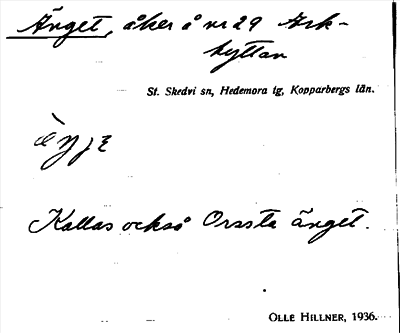 Änget, åker å nr 29 Ark-
hyttan
St. Skedvi sn, Hedemora tg, Kopparbergs län.
Kallas också Orssta änget.
OLLE HILLNER, 1936.